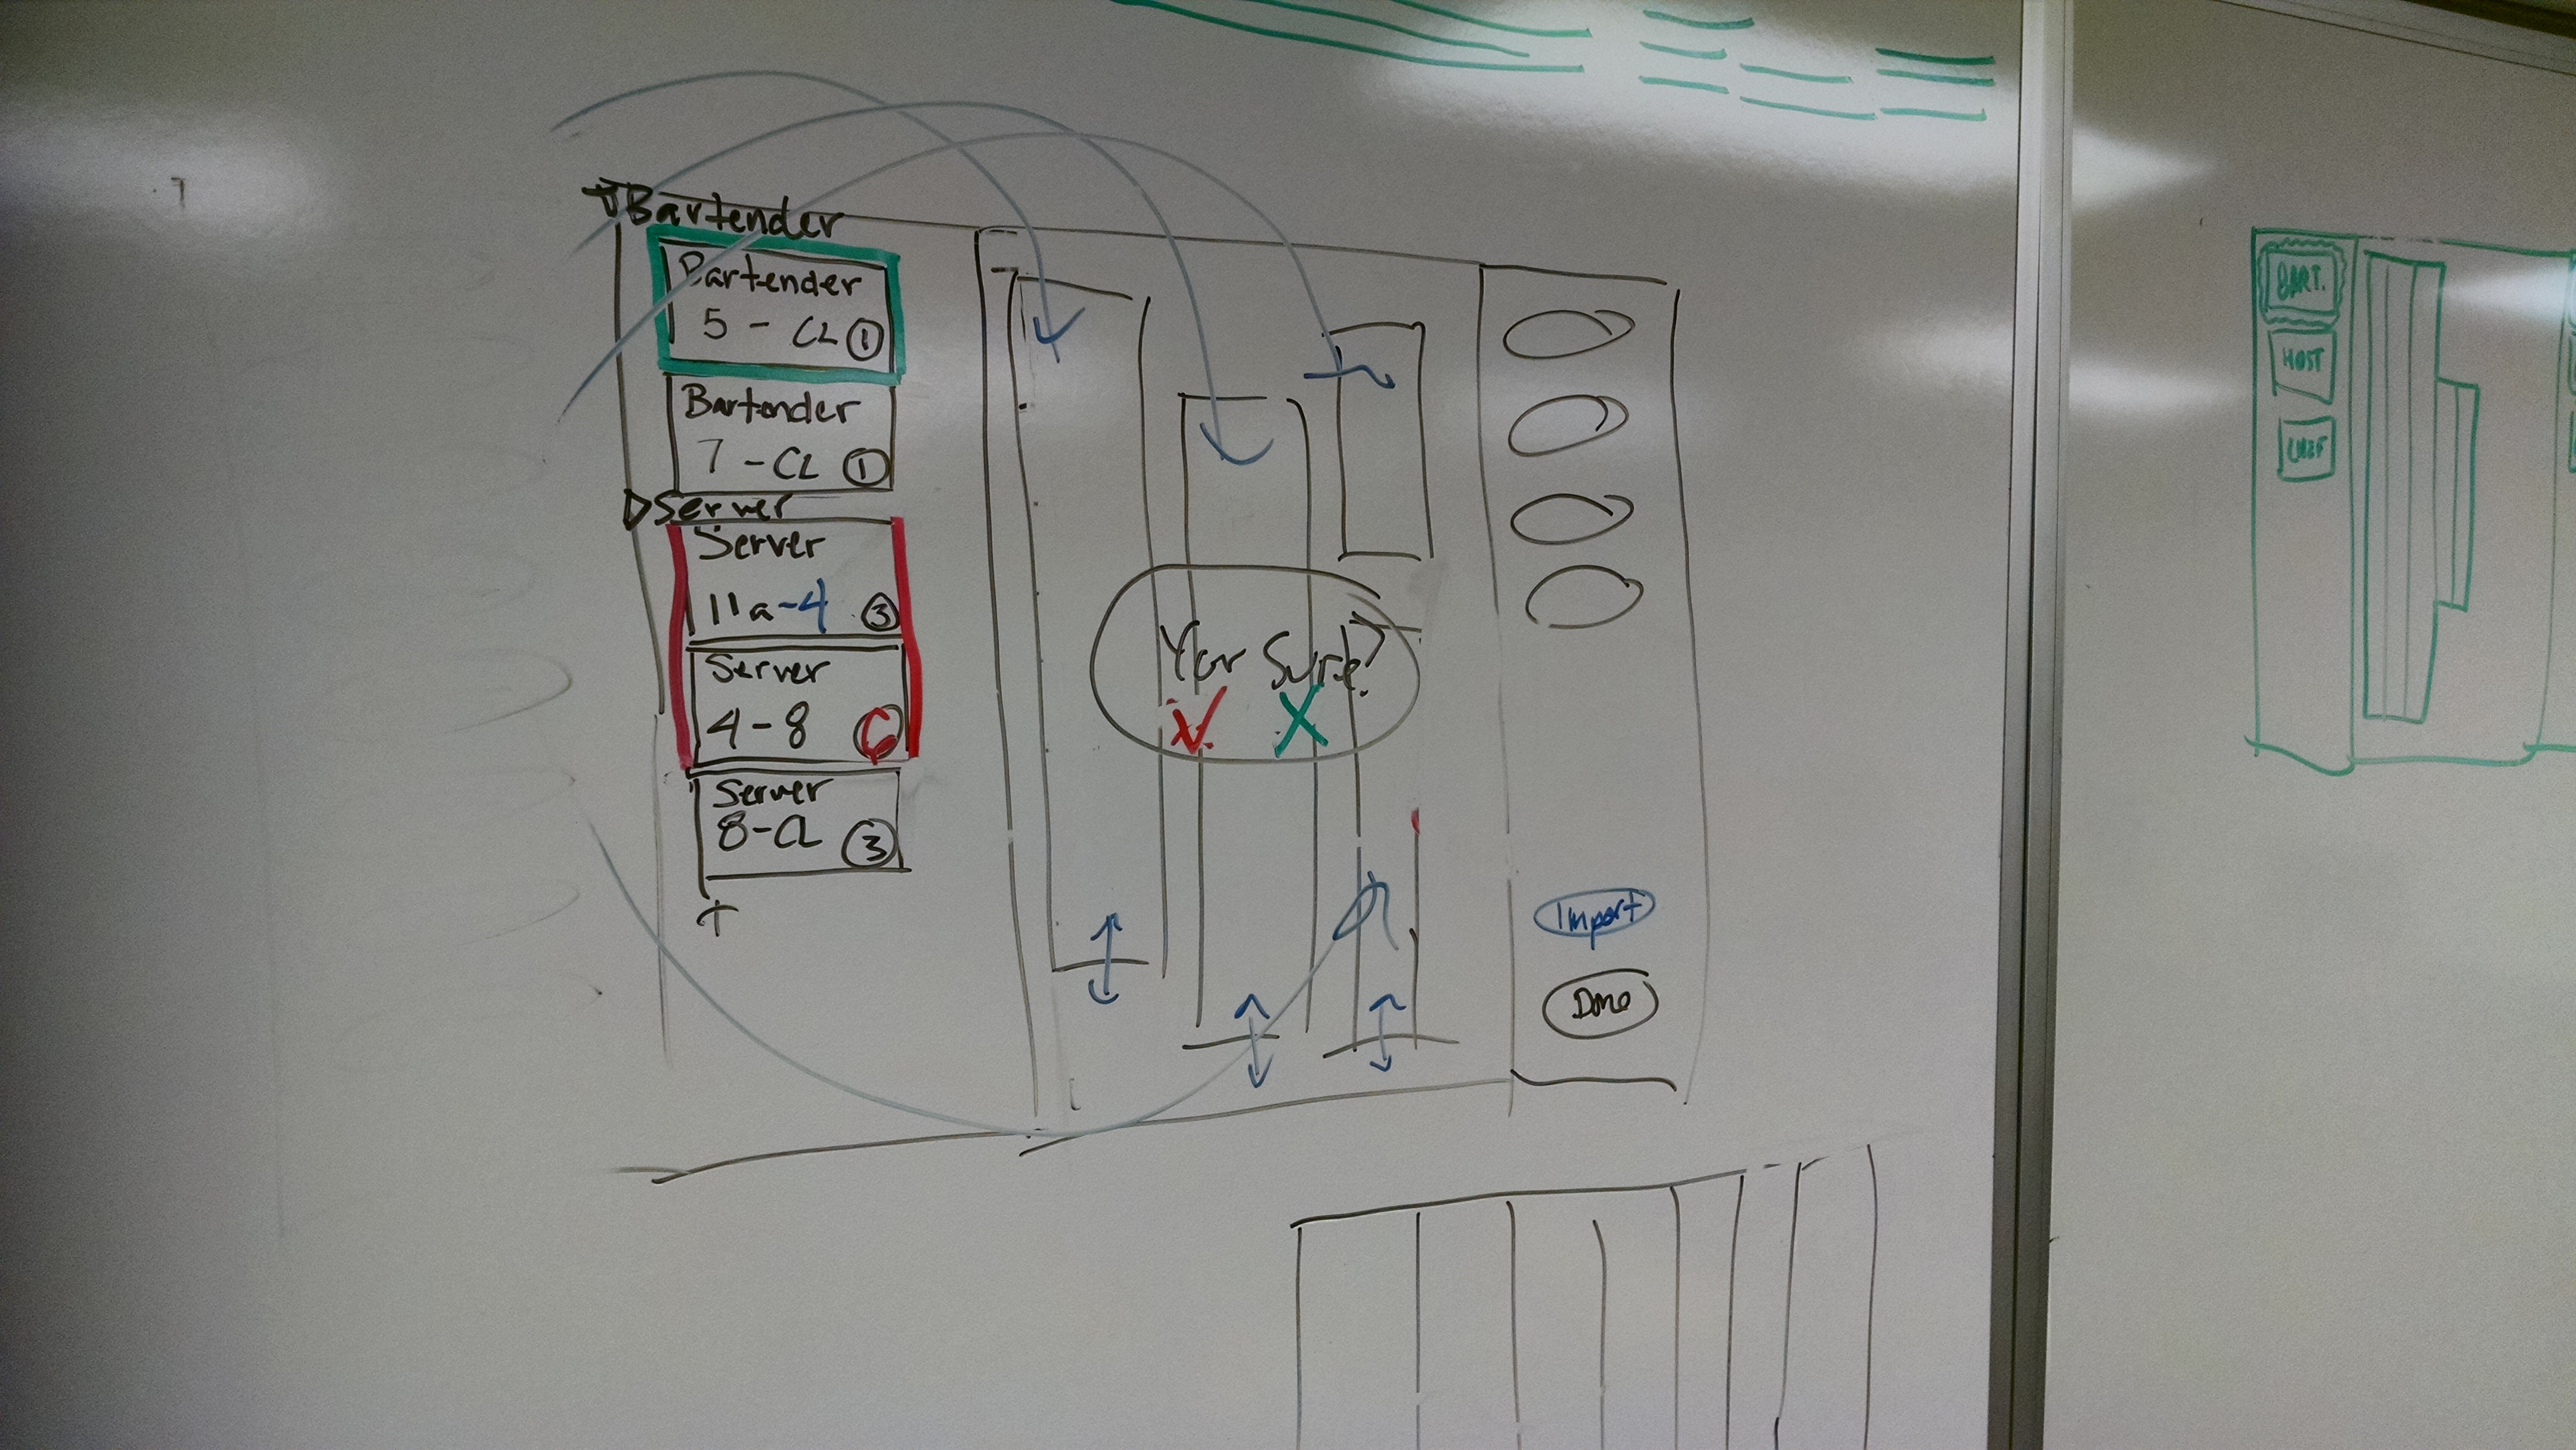 Bartender
Bartender
5 - CL 1
Bartender
7 - CL 1
Server
Server
11a-4 3
Server
4-8
Server
8-CL 3
+
Sure?
Import
Done
BART.
HOST
CHEF